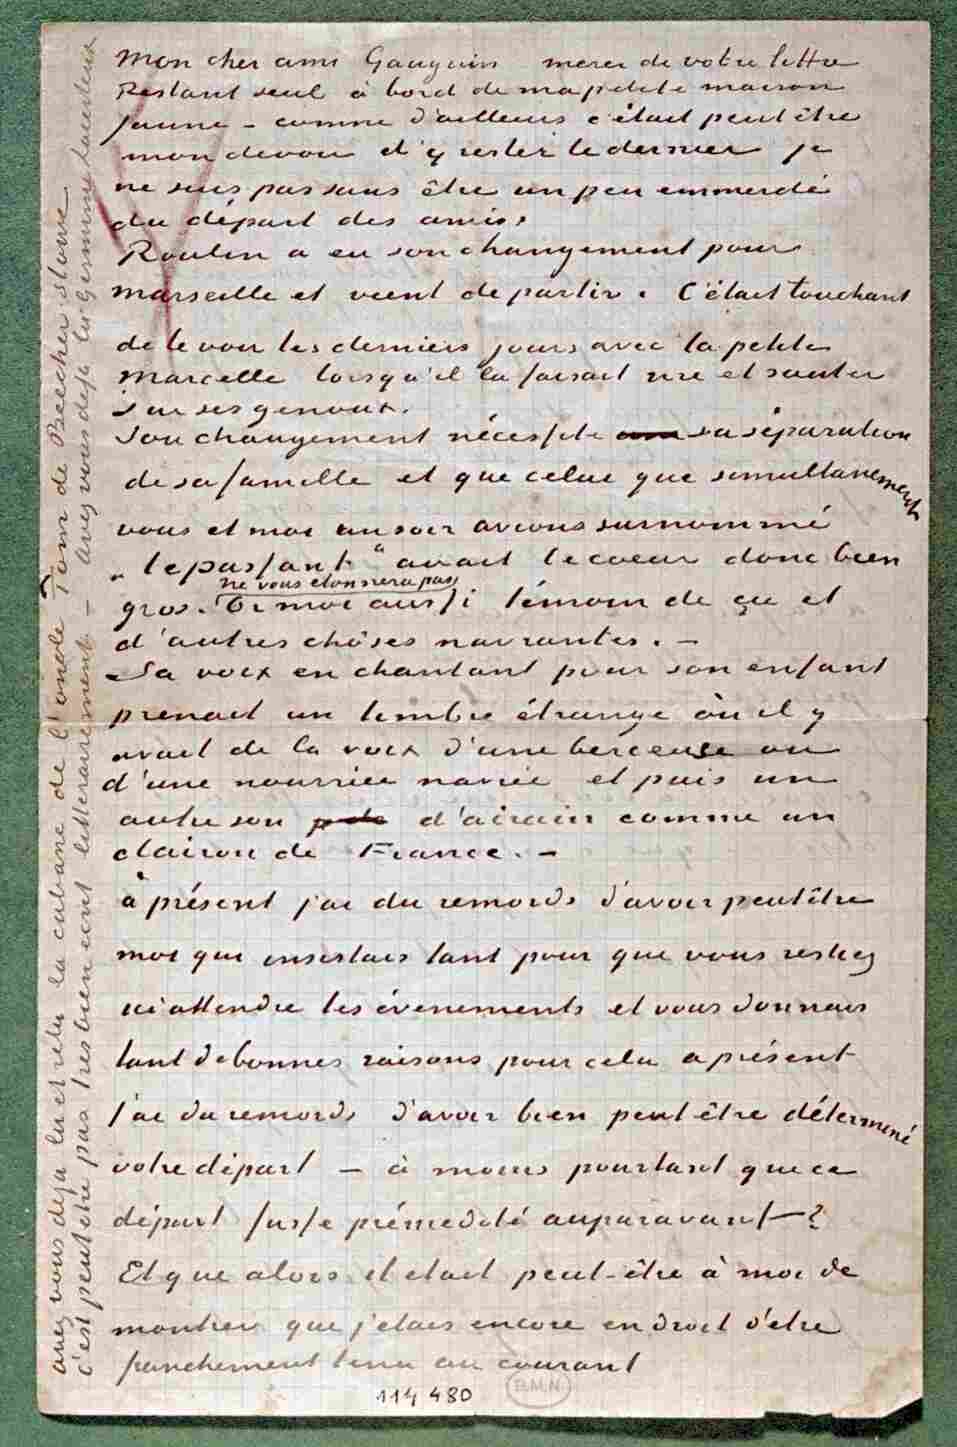 Mon cher ami Gauguin merci de votre lettre
Restant seul à bord de ma petite maison
jaune – comme d'ailleurs c'était peut être
mon devoir d'y rester le dernier je
ne suis pas sans être un peu emmerdé
du départ des amis.
Roulin a eu son changement pour
Marseille et vient de partir. C'était touchant
de le voir les derniers jours avec la petite
Marcelle lorsqu'il la faisait rire et sauter
sur ses genoux.
Son changement nécessite sa séparation
de sa famille et que celui que simultanement
vous et moi un soir avions surnommé
„le passant“ avait le coeur donc bien
ne vous etonnera pas
gros. Or moi aussi témoin de ça et
d'autres chôses navrantes. –
Sa voix en chantant pour son enfant
prenait un timbre étrange où il y
avait de la voix d'une berceuse ou
d'une nourrice navrée et puis un
autre son d'airain comme un
clairon de France. –
à présent j'ai du remords d'avoir peutêtre
moi qui insistais tant pour que vous restiez
ici attendre les évènements et vous donnais
tant de bonnes raisons pour cela a présent
j'ai du remords d'avoir bien peut-être déterminé
votre départ – à moins pourtant que ce
départ fusse prémedité auparavant – ?
Et que alors il était peut-être à moi de
montrer que j'étais encore en droit d'être
franchement tenu au courant
114480
B.M.N.
avez vous deja lu et relu la cabane de l'oncle Tom de Beecher Stowe
c'est peut être pas très bien ecrit litterairement – avez vous deja lu Germinie Lacerteux